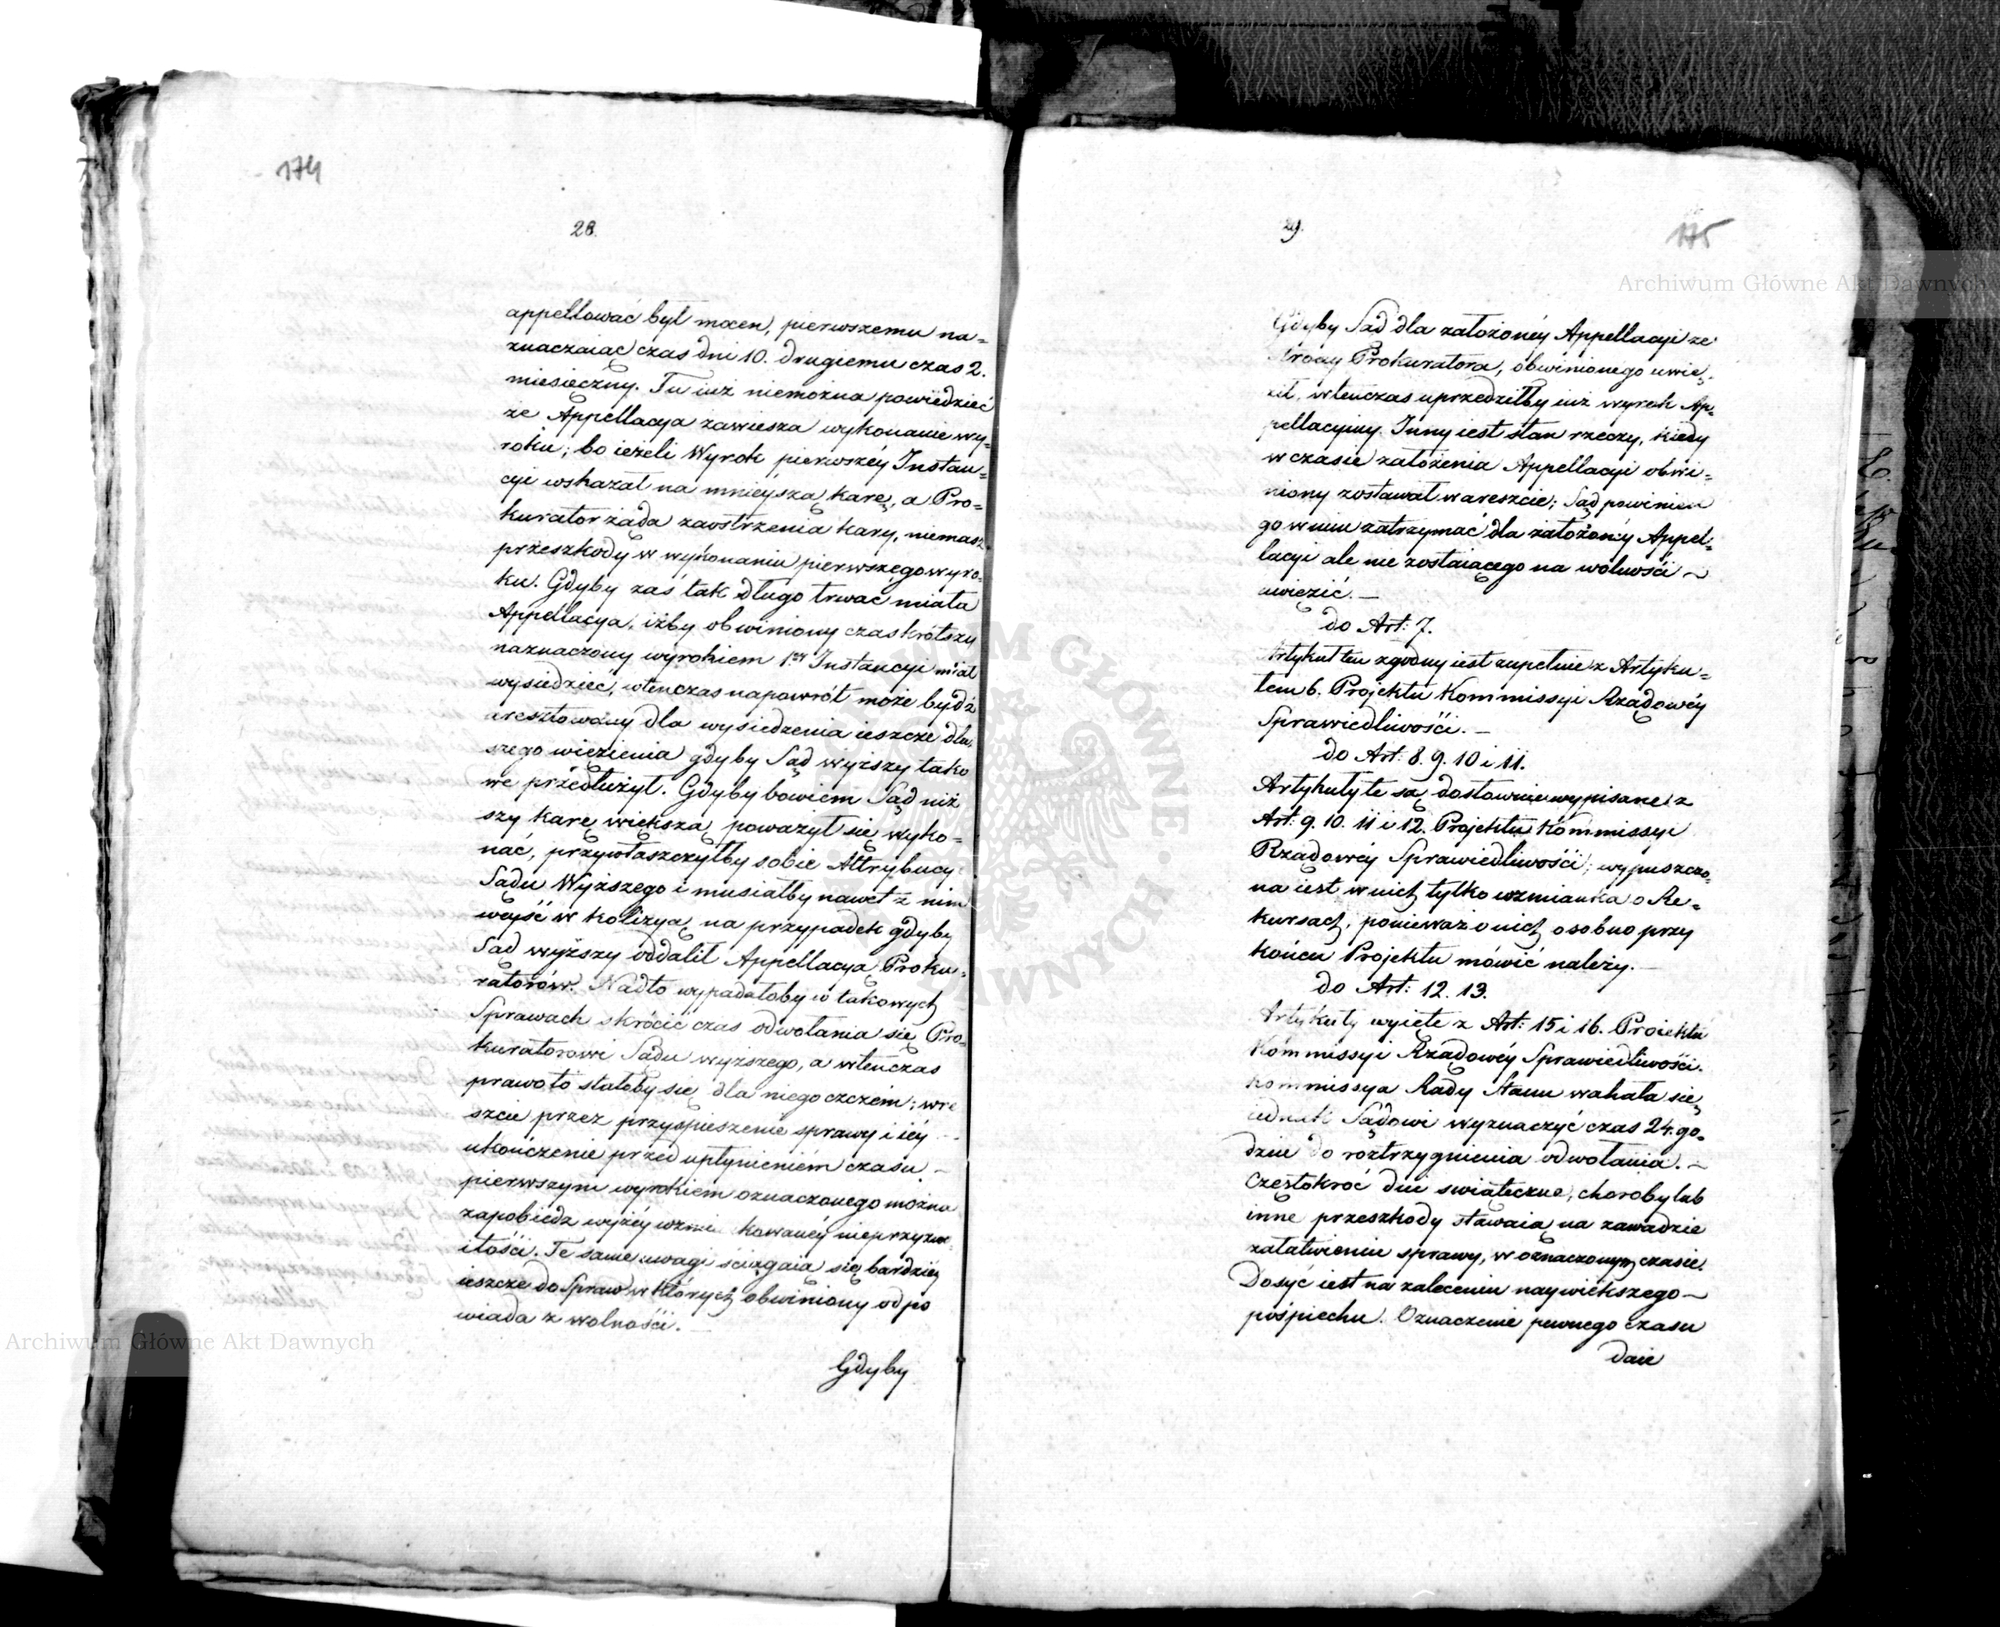 174
28.
appellować był mocen, pierwszemu na=
znaczaiąc czas dni 10. drugiemu czas 2.
miesięczny. Tu iuż niemożna powiedzieć
że Appellacya zawiesza wykonanie wy=
roku; bo ieżeli Wyrok pierwszéy Instan=
cyi wskazał na mnieyszą karę, a Pro=
kurator żąda zaostrzenia kary, niemasz
przeszkody w wykonaniu pierwszego wyro=
ku. Gdyby zaś tak długo trwać miała
Appellacya, iżby obwiniony czas krótszy
naznaczony wyrokiem 1széy Instancyi miał
wysiedzieć, wtenczas napowrót może bydź
aresztowany dla wysiedzenia ieszcze dłu=
szego więzienia gdyby Sąd wyższy tako
we przedłużył. Gdyby bowiem Sąd niż
szy karę większą poważył się wyko=
nać, przywłaszczyłby sobie Attrybucy
Sądu Wyższego i musiałby nawet z nim
weyść w kolizyą, na przypadek gdyby
Sąd wyższy oddalił Appellacyą Proku=
ratorów. Nadto wypadałoby w takowych
Sprawach skrócić czas odwołania się Pro=
kuratorowi Sądu wyższego, a wtenczas
prawo to stałoby się dla niego czczém; wre
szcie przez przyspieszenie sprawy i iéy
ukończenie przed upłynieniém czasu –
pierwszym wyrokiem oznaczonego można
zapobiedz wyżéy wzmi kowanéy nieprzyzwo=
itości. Te same uwagi ściągaią się bardziéy
ieszcze do Spraw w których obwiniony odpo
wiada z wolności. —
Gdyby
29.
175
Gdyby Sąd dla założonéy Appellacyi ze
strony Prokuratora, obwinionego uwię=
ził, wtenczas uprzedziłby iuż wyrok Ap=
pellacyiny. Inny iest stan rzeczy, kiedy
w czasie założenia Appellacyi obwi=
niony zostawał w areszcie; Sąd powinien
go w nim zatrzymać dla założonéy Appel=
lacyi ale nie zostaiącego na wolności –
uwięzić. —
do Art: 7.
Artykuł ten zgodny iest zupełnie z Artyku=
łem 6. Projektu Kommissyi Rządowéy
Sprawiedliwości. —
do Art: 8. 9. 10 i 11.
Artykuły te są dosłownie wypisane z
Art: 9. 10. 11 i 12. Projektu Kommissyi
Rządowéy Sprawiedliwości; wypuszczo=
na iest w nich tylko wzmianka o Re=
kursach, ponieważ o nich osobno przy
końcu Projektu mówić należy. —
do Art: 12. 13.
Artykuły wyięte z Art: 15 i 16. Proiektu
Kommissyi Rządowéy Sprawiedliwości.
Kommissya Rady Stanu wahała się
iednak Sądowi wyznaczyć czas 24. go=
dzin do rozstrzygnienia odwołania. –
Częstokroć dni swiąteczne, choroby lub
inne przeszkody stawaią na zawadzie
załatwieniu sprawy, w oznaczonym czasie.
Dosyć iest na zaleceniu naywiększego –
pośpiechu. Oznaczenie pewnego czasu
daie
Archiwum Główne Akt Dawnych
Archiwum Główne Akt Dawnych